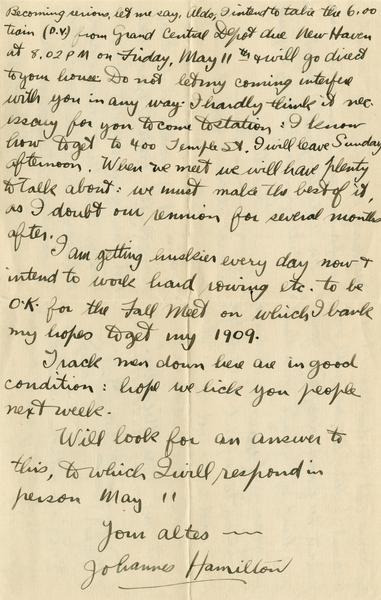 Becoming serious, let me say, Aldo, I intend to take the 6.00
train (D.V.) from Grand Central Depot due New Haven
at 8.02 PM on Friday, May 11th & will go direct
to your house. Do not let my coming interfere
with you in any way. I hardly think it nec-
issary for you to come to station: I know
how to get to 400 Temple St. I will leave Sunday
afternoon. When we meet we will have plenty
to talk about: we must make the best of it,
as I doubt our reunion for several months
after.
I am getting huskier every day now &
intend to work hard rowing etc. to be
O.K. for the Fall Meet on which I bank
my hopes to get my 1909.
Track men down here are in good
condition: hope we lick you people
next week.
Will look for an answer to
this, to which I will respond in
person May 11
Your altes —
Johannes Hamilton